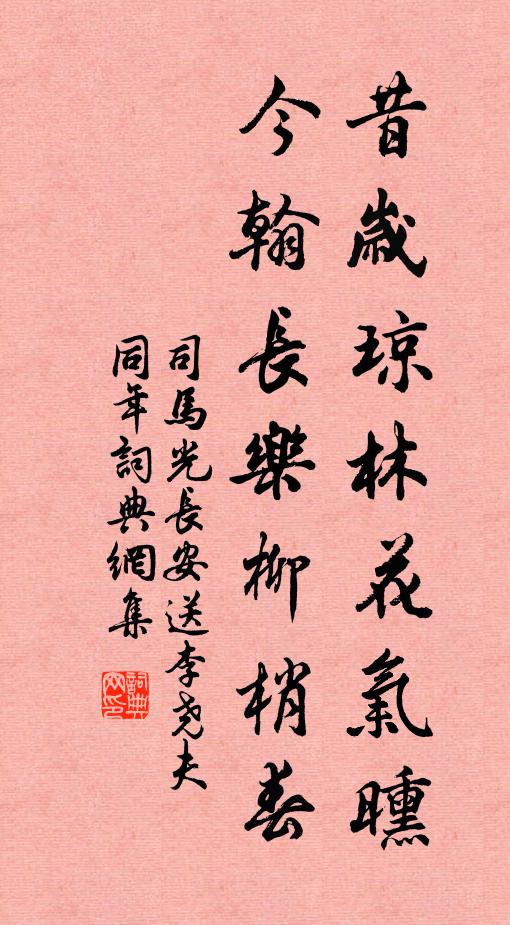 昔歲琼林花氣曛
今翰長樂柳梢春
司馬光長安送李尧夫
同年詞典網集
詞典網印